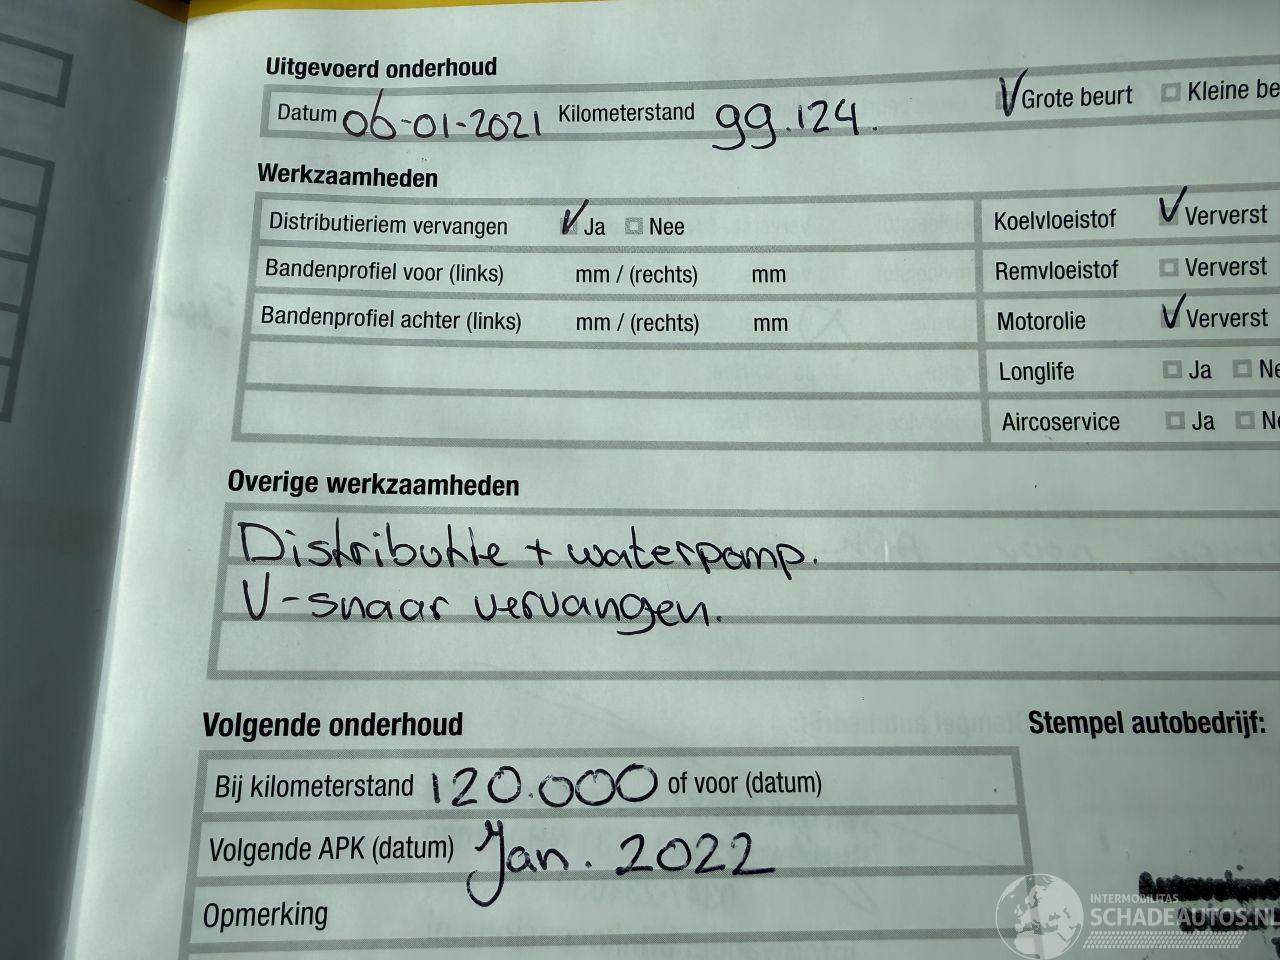 Uitgevoerd onderhoud
Datum 06-01-2021 Kilometerstand 99.124. Grote beurt Kleine be
Werkzaamheden
Distributieriem vervangen Ja Nee Koelvloeistof Ververst
Bandenprofiel voor (links) mm / (rechts) mm Remvloeistof Ververst
Bandenprofiel achter (links) mm / (rechts) mm Motorolie Ververst
Longlife Ja Ne
Aircoservice Ja Ne
Overige werkzaamheden
Distributie + waterpomp.
V-snaar vervangen.
Volgende onderhoud Stempel autobedrijf:
Bij kilometerstand 120.000 of voor (datum)
Volgende APK (datum) Jan. 2022
Opmerking
INTERMOBILITAS
SCHADEAUTOS.NL